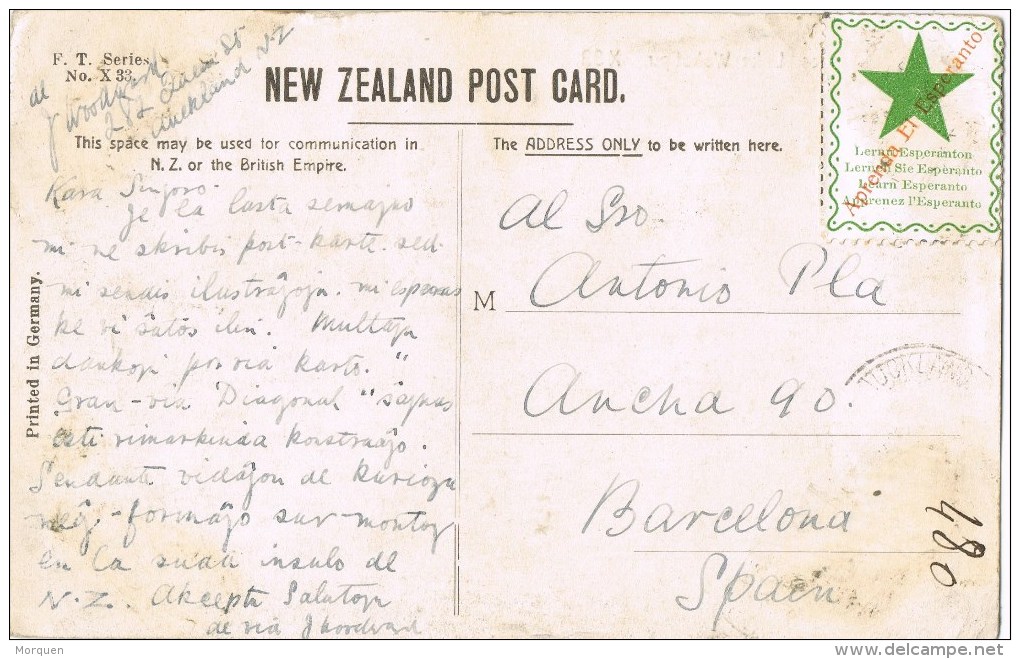 F. T. Series
No. X 33.
al
J Woodward
282 Queen St
Auckland N.Z
NEW ZEALAND POST CARD.
This space may be used for communication in
N. Z. or the British Empire.
The ADDRESS ONLY to be written here.
Aprenda El Esperanto
Lernu Esperanton
Lernen Sie Esperanto
Learn Esperanto
Apprenez l'Esperanto
Kara Sinjoro.
Je la lasta semajno
mi ne skribis post-karte. sed
mi sendis ilustraĵojn. mi esperas
ke vi ŝatos ilin. Multajn
dankojn por via karto. "
Gran-via Diagonal" ŝajnas
esti rimarkinda konstruaĵo.
Sendante vidaĵon de kurioza
neĝ-formaĵo sur montoj
en la suda insulo de
N.Z. Akceptu Salutojn
de via J Woodward
Al Sro.
M Antonio Pla
Ancha 90.
Barcelona
Spain
AUCKLAND
480
Printed in Germany.
Morquen
delcampe.net